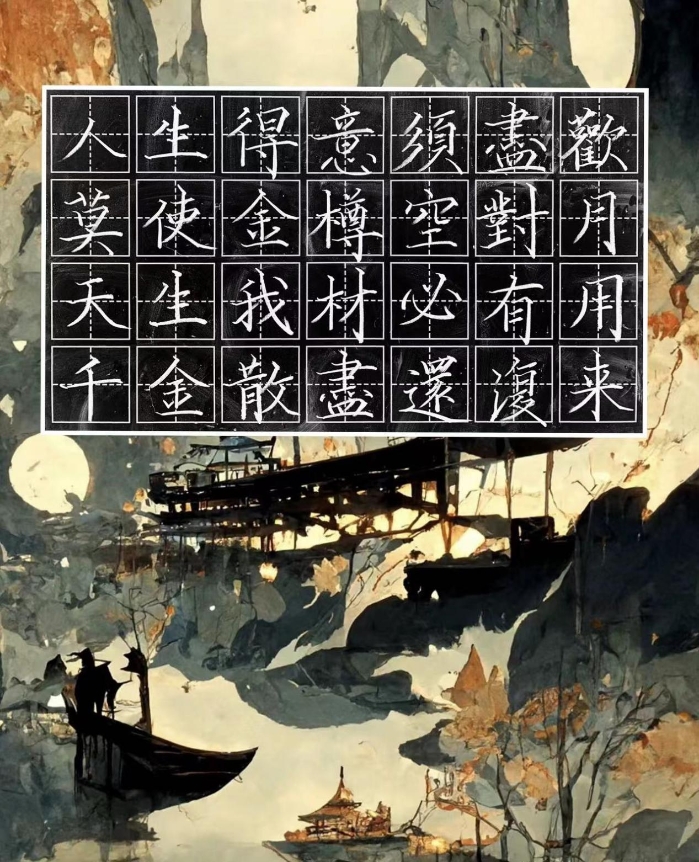 人生得意須盡歡
莫使金樽空對月
天生我材必有用
千金散盡還復来